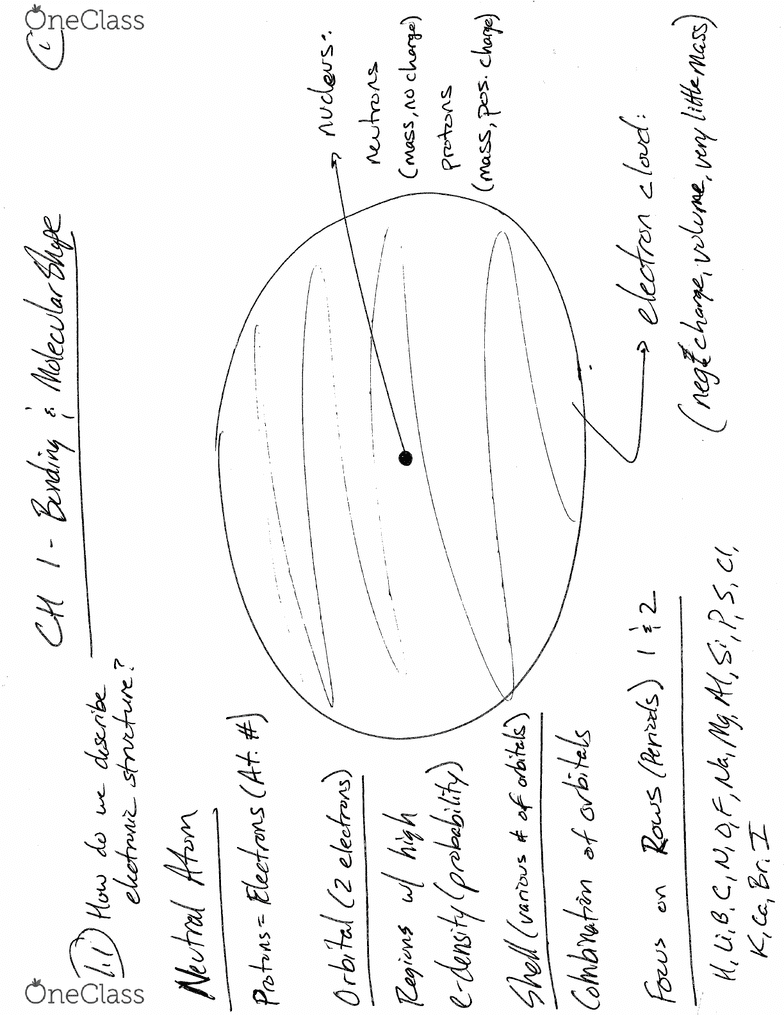 OneClass
1
CH 1 - Bonding & Molecular Shape
1.1) How do we describe
electronic structure?
Neutral Atom
Protons = Electrons (At. #)
Orbital (2 electrons)
Regions w/ high
e-density (probability)
Shell (various # of orbitals)
Combination of orbitals
Focus on Rows (Periods) 1 & 2
H, Li, B, C, N, O, F, Na, Mg, Al, Si, P, S, Cl,
K, Ca, Br, I
nucleus:
neutrons
(mass, no charge)
protons
(mass, pos. charge)
electron cloud:
(neg charge, volume, very little mass)
OneClass